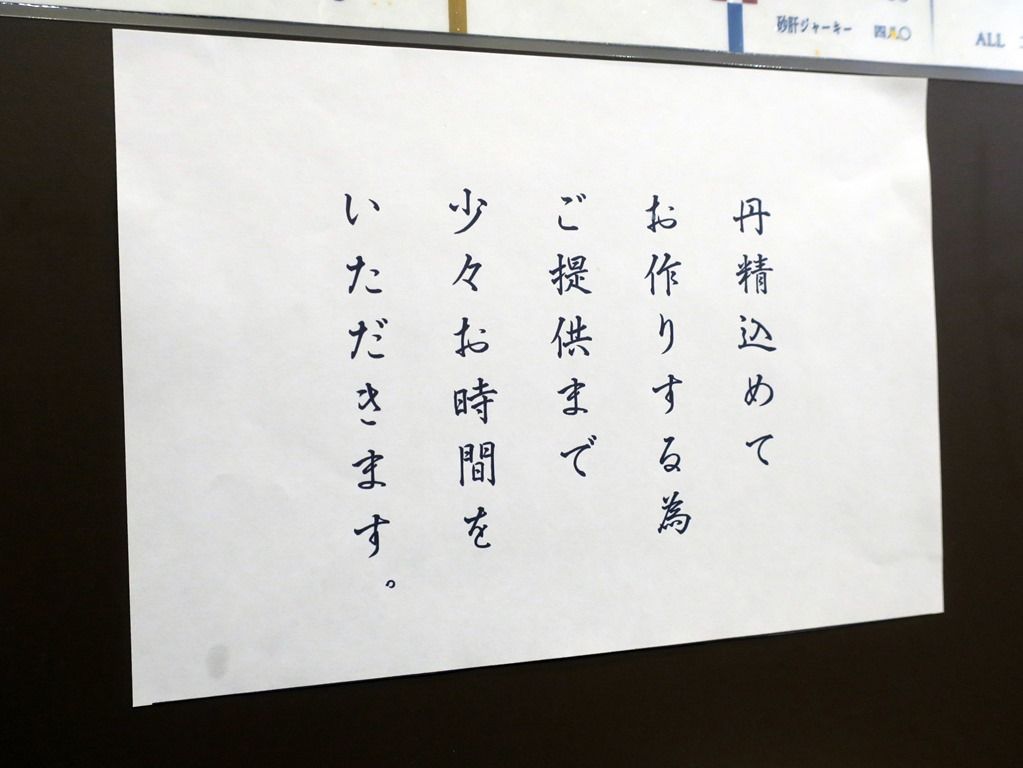 砂肝ジャーキー 四八〇
ALL
丹精込めて
お作りする為
ご提供まで
少々お時間を
いただきます。